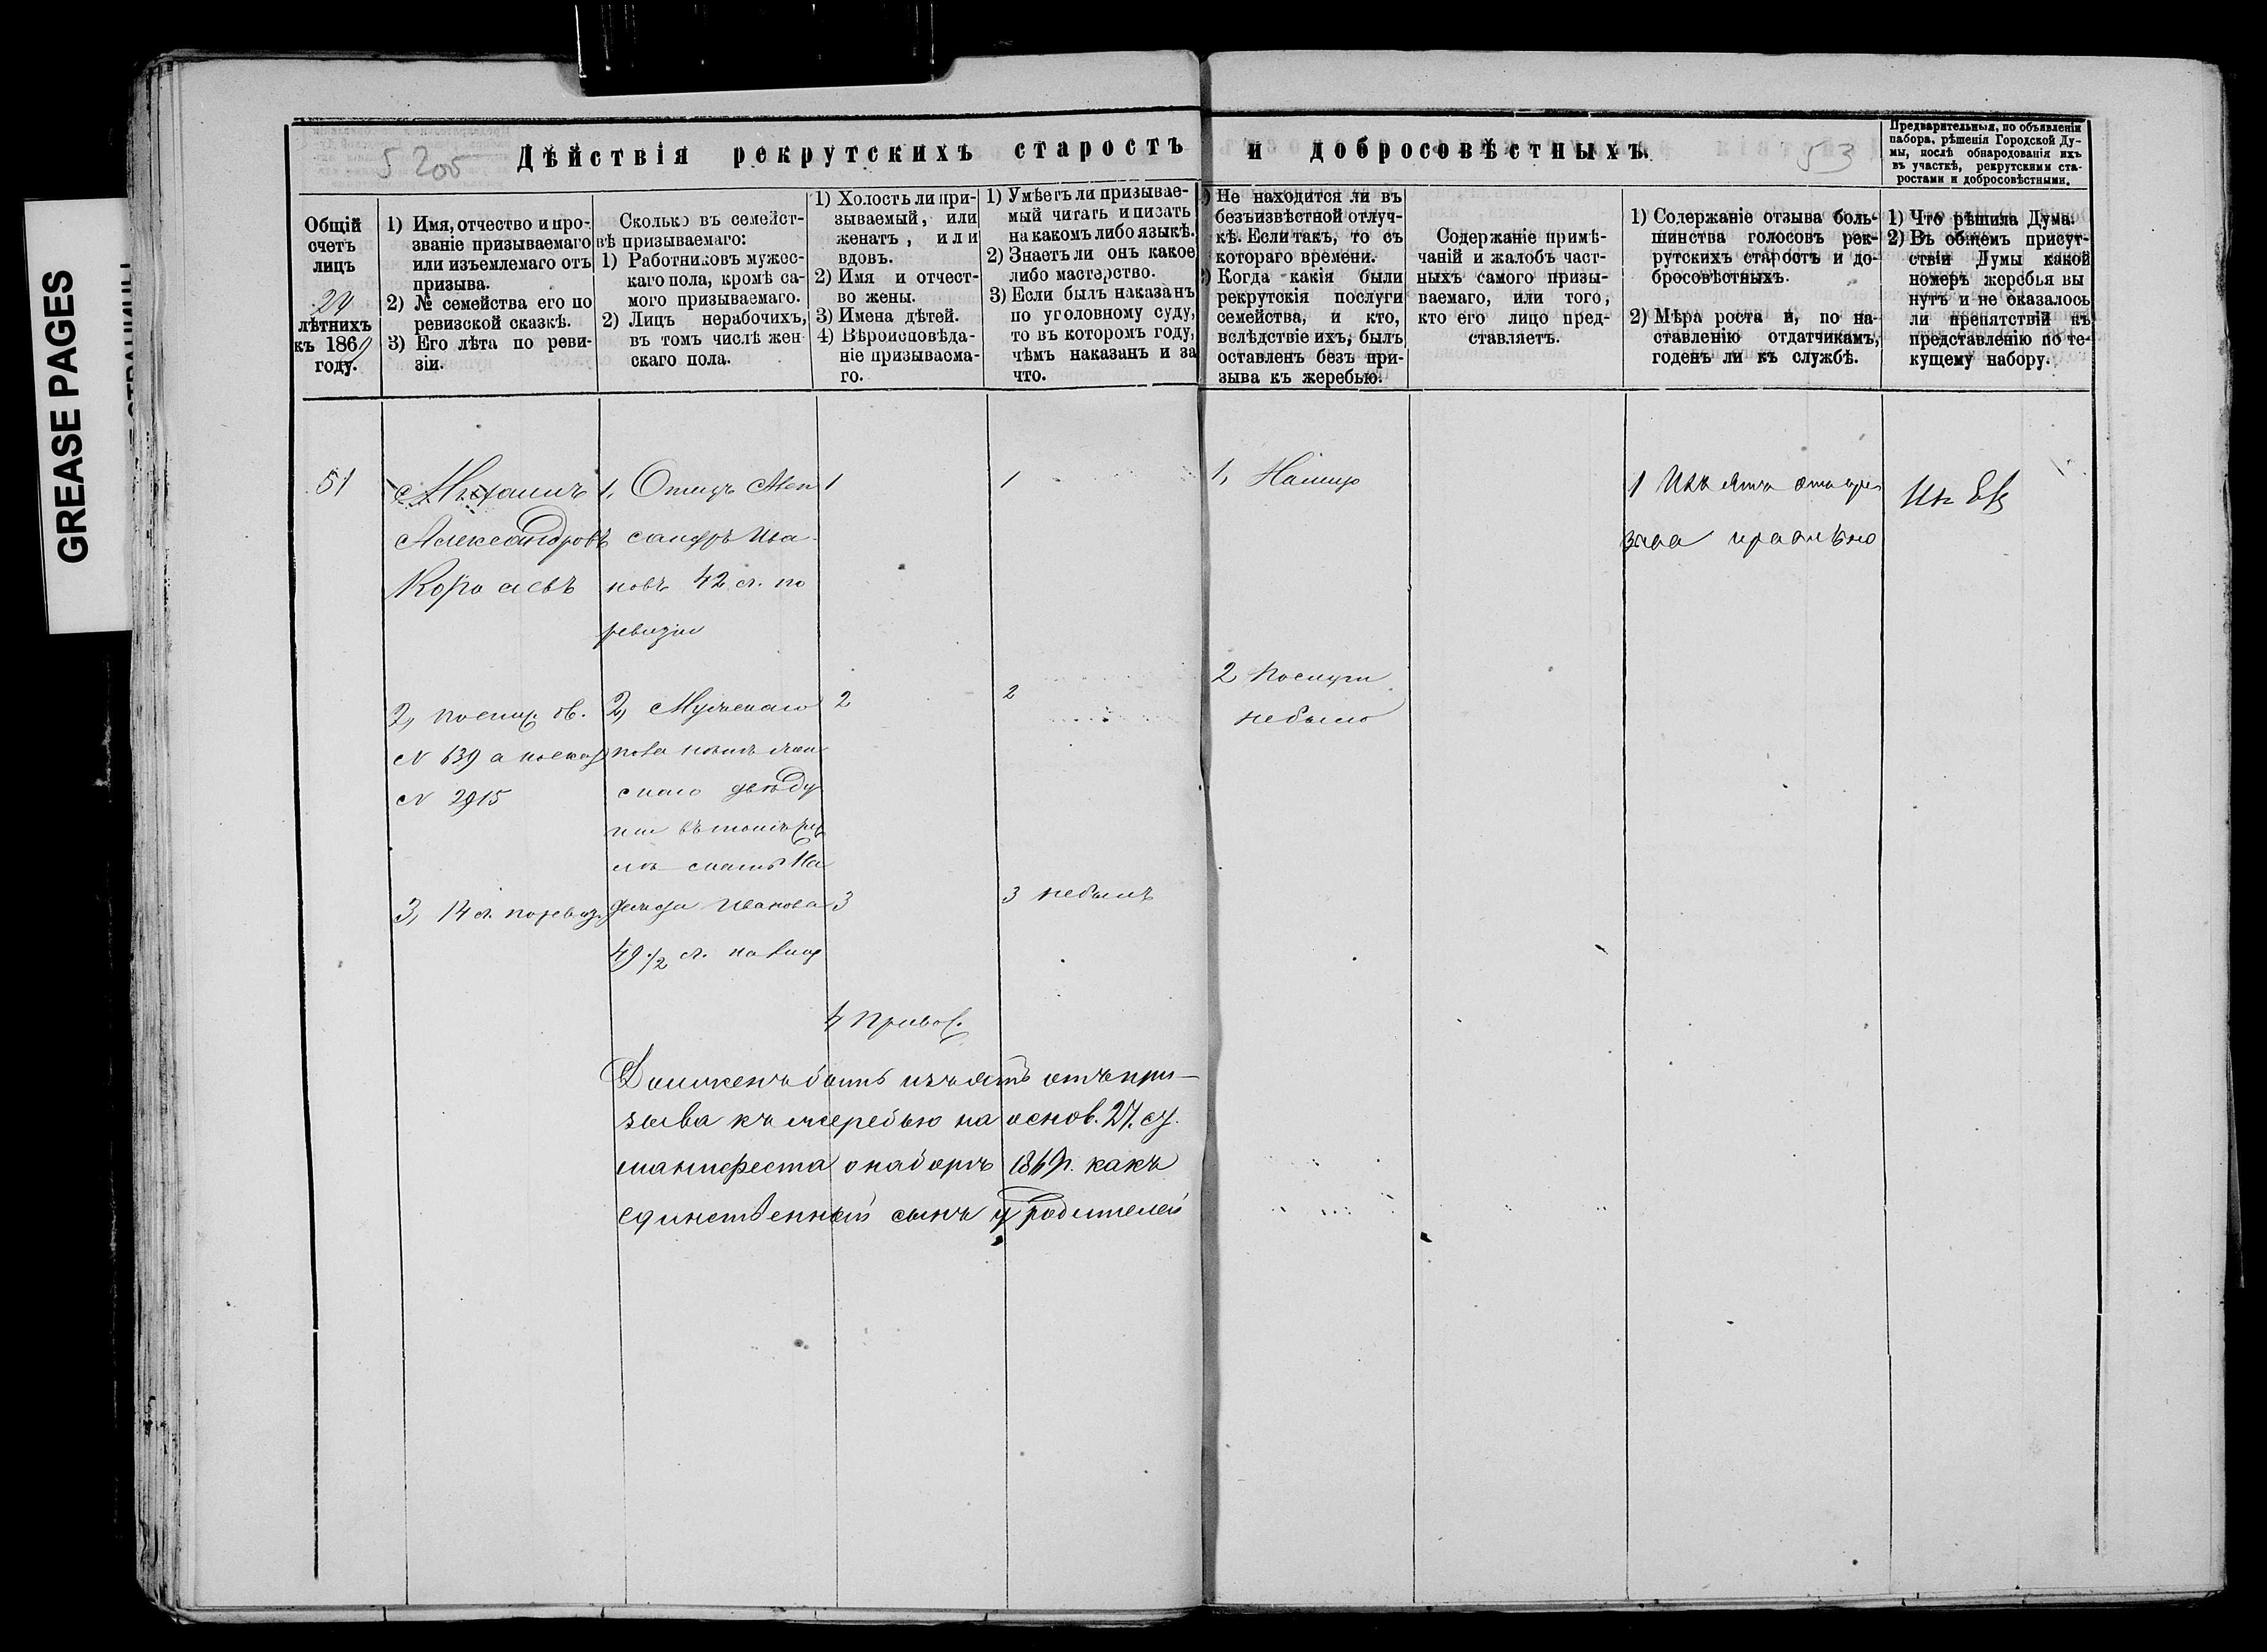 GREASE PAGES
5 205
53
Дѣйствія рекрутскихъ старостъ и добросовѣстныхъ.
Предварительныя, по объявленіи
набора, рѣшенія Городской Ду-
мы, послѣ обнародованія ихъ
въ участкѣ, рекрутскими ста-
ростами и добросовѣстными.
Общій
счетъ
лицъ
лѣтнихъ
къ 1869
году.
1) Имя, отчество и про-
званіе призываемаго
или изъемлемаго отъ
призыва.
2) № семейства его по
ревизской сказкѣ.
3) Его лѣта по реви-
зіи.
Сколько въ семейст-
вѣ призываемаго:
1) Работниковъ мужес-
каго пола, кромѣ са-
мого призываемаго.
2) Лицъ нерабочихъ,
въ томъ числѣ жен
скаго пола.
1) Холостъ ли при-
зываемый, или
женатъ, или
вдовъ.
2) Имя и отчест-
во жены.
3) Имена дѣтей.
4) Вѣроисповѣда-
ніе призываема-
го.
1) Умѣетъ ли призывае-
мый читать и писать
на какомъ либо языкѣ.
2) Знаетъ ли онъ какое
либо мастерство.
3) Если былъ наказанъ
по уголовному суду,
то въ которомъ году,
чѣмъ наказанъ и за
что.
Не находится ли въ
безъизвѣстной отлуч-
кѣ. Если такъ, то съ
котораго времени.
Когда какія были
рекрутскія послуги
семейства, и кто,
вслѣдствіе ихъ, былъ
оставленъ безъ при-
зыва къ жеребью.
Содержаніе примѣ-
чаній и жалобъ част-
ныхъ самого призы-
ваемаго, или того,
кто его лицо пред-
ставляетъ.
1) Содержаніе отзыва боль-
шинства голосовъ рек-
рутскихъ старостъ и до-
бросовѣстныхъ.
2) Мѣра роста и, по на-
ставленію отдатчикамъ,
годенъ ли къ службѣ.
1) Что рѣшила Дума.
2) Въ общемъ присут-
ствіи Думы какой
номеръ жеребья вы
нутъ и не оказалось
ли препятствій къ
представленію по те-
кущему набору.
51
Михаилъ
Александровъ
1, Отецъ Алек
сандръ Ива
новъ 42 л. по
ревизіи
2,
N 639 а по сказ
N 2915
3, 14 л. по ревиз.
2, Мужескаго
пола нѣтъ жен
скаго двѣ ду
ши въ томъ чи
слѣ мать На
дежда Иванова
49 1/2 л.
1
2
3
4 Правос.
1
2
3 небылъ
1,
2 Послуги
небыло
1 Изъятъ отъ при
зыва правильно
Долженъ быть изъятъ отъ при-
зыва къ жеребью на основ. 27. ст.
манифеста о наборѣ 1869г. какъ
единственный сынъ у родителей